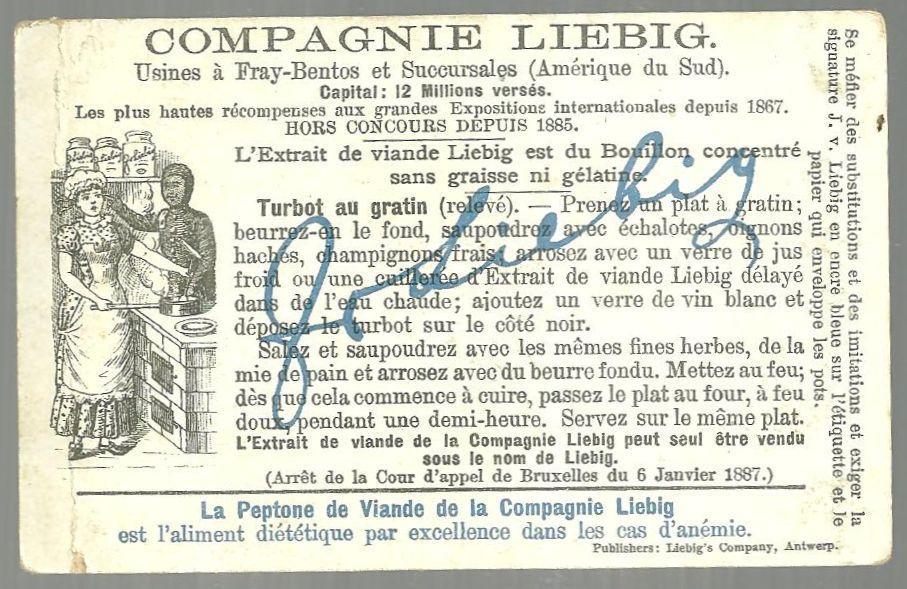 COMPAGNIE LIEBIG.
Usines à Fray-Bentos et Succursales (Amérique du Sud).
Capital: 12 Millions versés.
Les plus hautes récompenses aux grandes Expositions internationales depuis 1867.
HORS CONCOURS DEPUIS 1885.
L'Extrait de viande Liebig est du Bouillon concentré
sans graisse ni gélatine.
Turbot au gratin (relevé). — Prenez un plat à gratin;
beurrez-en le fond, saupoudrez avec échalotes, oignons
hachés, champignons frais, arrosez avec un verre de jus
froid ou une cuillerée d'Extrait de viande Liebig délayé
dans de l'eau chaude; ajoutez un verre de vin blanc et
déposez le turbot sur le côté noir.
Salez et saupoudrez avec les mêmes fines herbes, de la
mie de pain et arrosez avec du beurre fondu. Mettez au feu;
dès que cela commence à cuire, passez le plat au four, à feu
doux, pendant une demi-heure. Servez sur le même plat.
L'Extrait de viande de la Compagnie Liebig peut seul être vendu
sous le nom de Liebig.
(Arrêt de la Cour d'appel de Bruxelles du 6 Janvier 1887.)
La Peptone de Viande de la Compagnie Liebig
est l'aliment diététique par excellence dans les cas d'anémie.
Publishers: Liebig's Company, Antwerp.
Se méfier des substitutions et des imitations et exiger la
signature J. v. Liebig en encre bleue sur l'étiquette et le
papier qui enveloppe les pots.
JvLiebig
Liebig
Liebig
Liebig